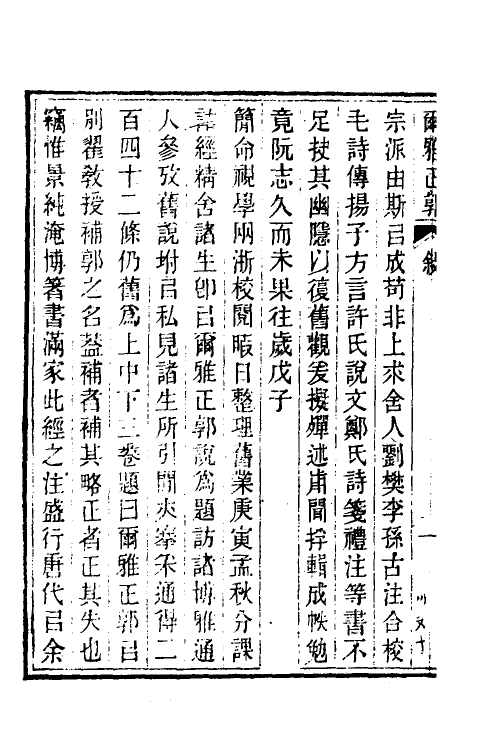 爾雅正郭 敘 一
宗派由斯㠯成苟非上求舍人劉樊李孫古注合校
毛詩傳揚子方言許氏說文鄭氏詩箋禮注等書不
足抉其幽隱以復舊觀爰擬殫述甫聞捊輯成帙勉
竟阮志久而未果往歲戊子
簡命視學兩浙校閱暇日整理舊業庚寅孟秋分課
詁經精舍諸生卽㠯爾雅正郭說爲題訪諸博雅通
人參攷舊說坿㠯私見諸生所引閒夾峚釆通得二
百四十二條仍舊爲上中下三卷題曰爾雅正郭㠯
別翟敎授補郭之名葢補者補其略正者正其失也
竊惟景純淹博箸書滿家此經之注盛行唐代㠯余